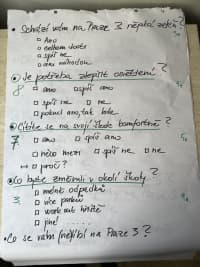 • Schází vám na Praze 3 něco zeleň?
□ Ano
□ celkem dost
□ spíš ne
□ ano náhodou
• Je potřeba zlepšit osvětlení?
8 □ ano □ spíš ano
□ spíš ne □ ne
□ pokud ano, tak kde
• Cítíte se na svojí škole komfortně?
7 □ ano □ spíš ano
□ něco mezi □ spíš ne □ ne
↦ proč?
• Co byste změnili v okolí školy?
3 □ méně odpadků
□ více parků
□ work out hřiště
□ jiné!
• Co se vám (ne)líbí na Praze 3?